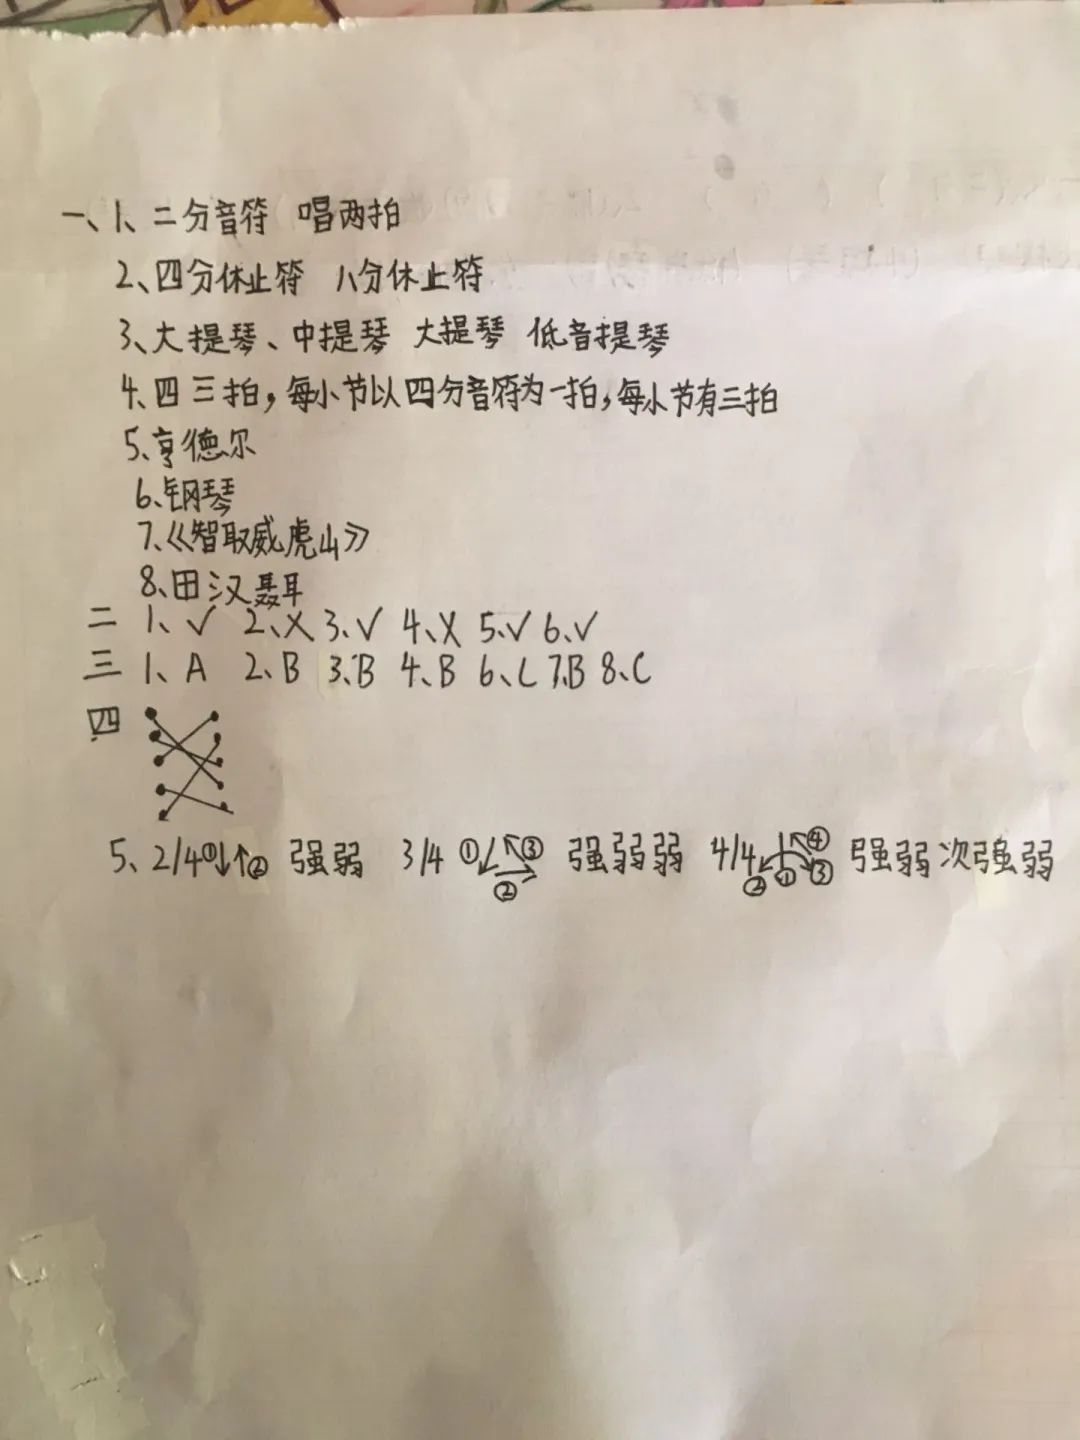 一、1、二分音符 唱两拍
2、四分休止符 八分休止符
3、大提琴、中提琴 大提琴 低音提琴
4、四三拍，每小节以四分音符为一拍，每小节有三拍
5、亨德尔
6、钢琴
7、《智取威虎山》
8、田汉聂耳
二 1、✓ 2、X 3、✓ 4、X 5、✓ 6、✓
三 1、A 2、B 3、B 4、B 6、C 7、B 8、C
四
5、2/4①↓↑② 强弱 3/4 ①↙②→③↖ 强弱弱 4/4 ②①③④ 强弱次强弱